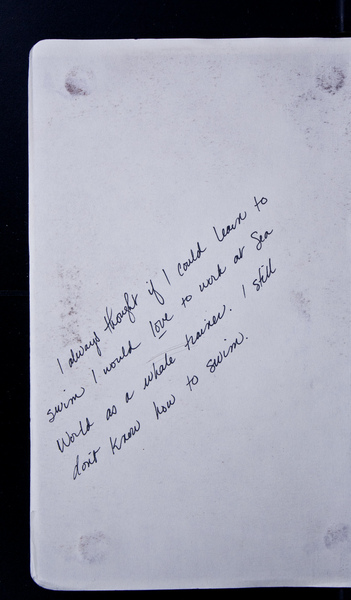 I always thought if I could learn to
swim I would love to work at Sea
World as a whale trainer. I still
don't know how to swim.